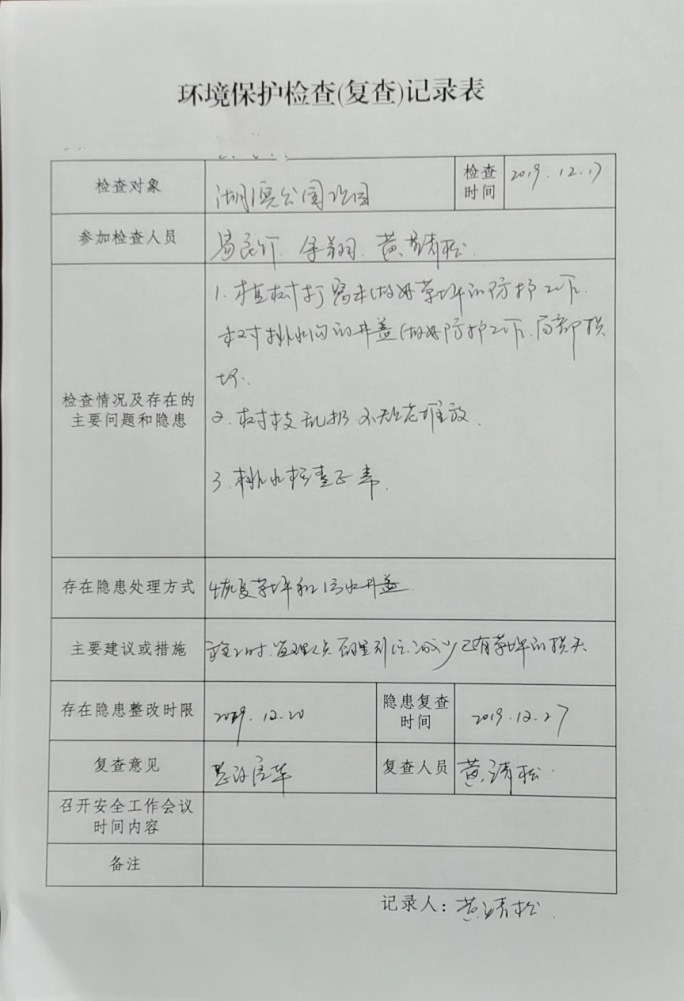 环境保护检查(复查)记录表
检查对象 湖滨公园 检查时间 2019.12.17
参加检查人员 易良竹 余翔 黄靖松
检查情况及存在的主要问题和隐患
1.植树打窝未做好草坪的防护工作.
未对排水沟的井盖做好防护工作.局部损
坏.
2.树枝乱扔 不规范堆放.
3.排水检查正常.
存在隐患处理方式 恢复草坪和污水井盖
主要建议或措施 施工时.管理人员 引以 减少已有草坪的损失
存在隐患整改时限 2019.12.20 隐患复查时间 2019.12.27
复查意见 复查人员 黄靖松
召开安全工作会议时间内容
备注
记录人：黄靖松